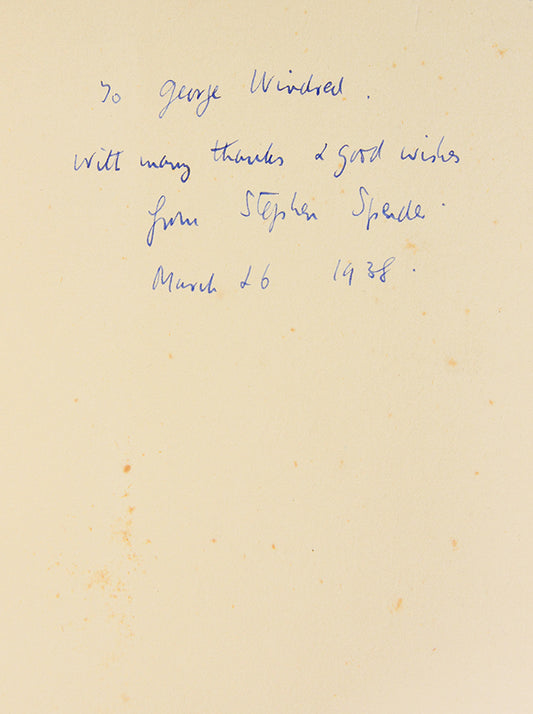 To George Windred.
with many thanks & good wishes
from Stephen Spender.
March 26 1938.